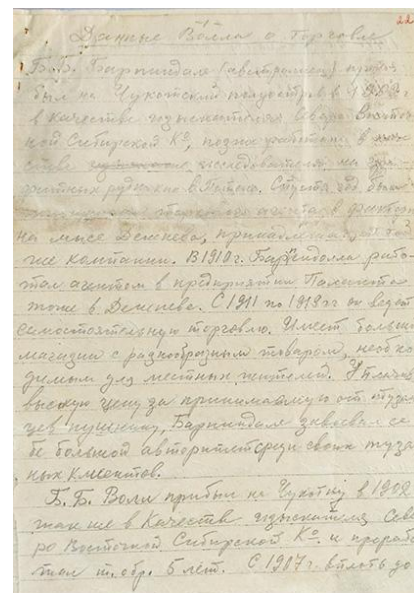 -1-
22
Данные Волла о торговле
Б. Б. Бариндале (австралиец) прибыл
был на Чукотский полуостров в
в качестве изыскателя Северо Восточ
ной Сибирской Ко, позже работал в каче
стве исследователя на гра
фитных рудниках. Спустя год был
агента в фактории
на мысе Дежнева, принадлежащей той
же компании. В 1910 г. рабо
тал агентом в предприятии
тоже в Дежневе. С 1911 по 1919 гг он ведет
самостоятельную торговлю. Имеет большой
магазин с разнообразным товаром, необхо
димым для местных жителей. Уплачивая
высокую цену за принимаемую от тузем
цев пушнину, Бариндале завоевал се
бе большой авторитет среди своих тузем
ных клиентов.
Б. Б. Волл прибыл на Чукотку в 1902
также в качестве изыскателя Севе
ро Восточной Сибирской Ко. и прорабо
тал т. обр. 5 лет. С 1907 г. вплоть до